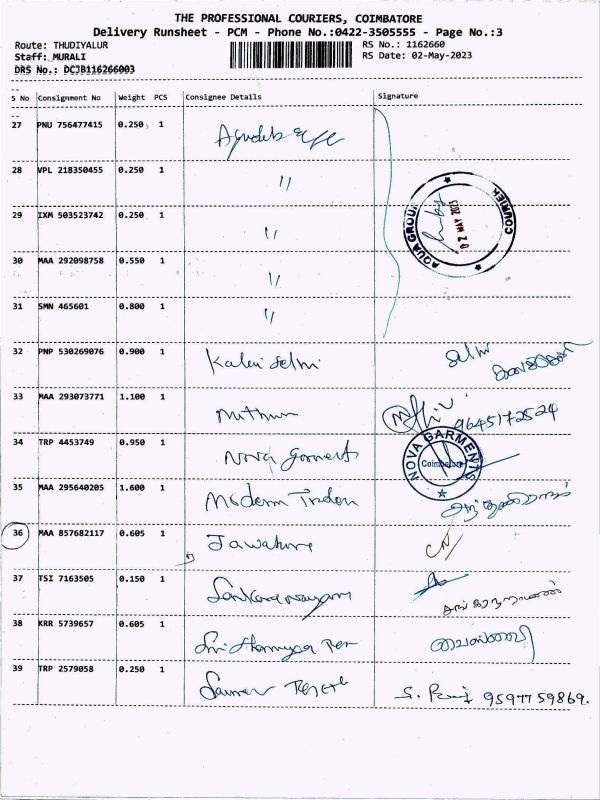 THE PROFESSIONAL COURIERS, COIMBATORE
Delivery Runsheet - PCM - Phone No.:0422-3505555 - Page No.:3
Route: THUDIYALUR RS No.: 1162660
Staff: MURALI RS Date: 02-May-2023
DRS No.: DCJB116266003
S No Consignment No Weight PCS Consignee Details Signature
27 PNU 756477415 0.250 1
28 VPL 218350455 0.250 1 "
29 IXM 503523742 0.250 1 "
AQUA GROUP COURIER 02 MAY 2023
30 MAA 292098758 0.550 1 "
31 SMN 465601 0.800 1 "
32 PNP 530269076 0.900 1 Kalai Selvi
33 MAA 293073771 1.100 1 Mithun 9645172524
34 TRP 4453749 0.950 1 Nova Garments NOVA GARMENTS Coimbatore
35 MAA 295640205 1.600 1 Modern
36 MAA 857682117 0.605 1
37 TSI 7163505 0.150 1
38 KRR 5739657 0.605 1 Sri
39 TRP 2579058 0.250 1 9597759869.